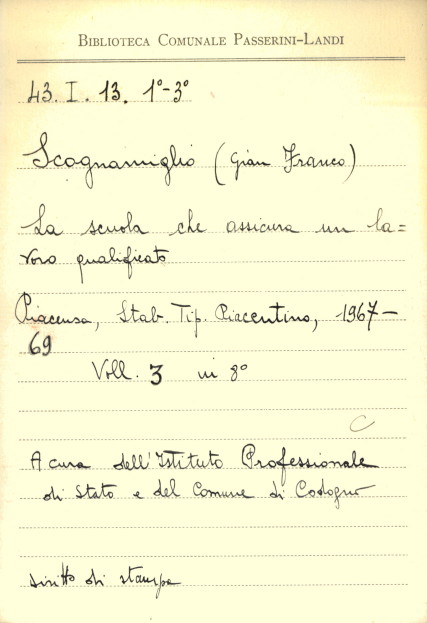 BIBLIOTECA COMUNALE PASSERINI-LANDI
43. I. 13. 1°-3°
Scognamiglio (Gian Franco)
La scuola che assicura un la=
voro qualificato
Piacenza, Stab. Tip. Piacentino, 1967-
69
Voll. 3 in 8°
C
A cura dell'Istituto Professionale
di Stato e del Comune di Codogno
diritto di stampa